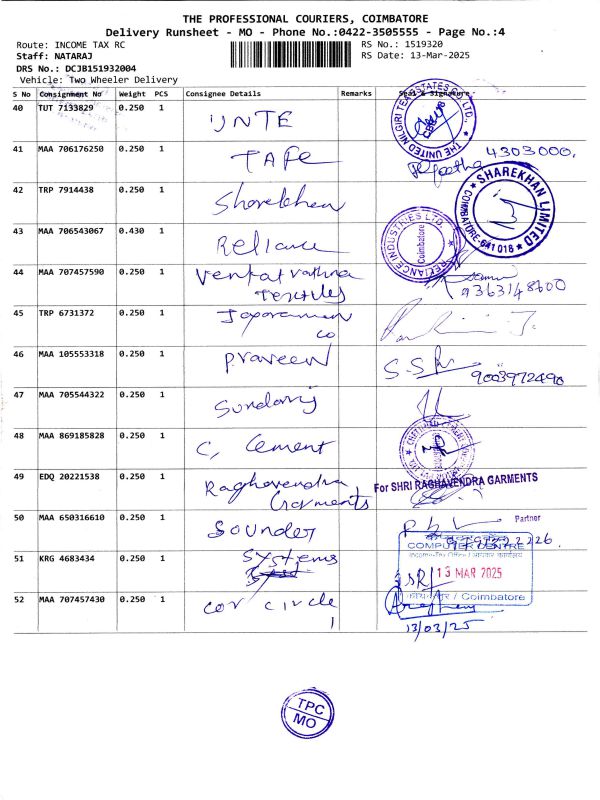 THE PROFESSIONAL COURIERS, COIMBATORE
Delivery Runsheet - MO - Phone No.:0422-3505555 - Page No.:4
Route: INCOME TAX RC
RS No.: 1519320
Staff: NATARAJ
RS Date: 13-Mar-2025
DRS No.: DCJB151932004
Vehicle: Two Wheeler Delivery
S No Consignment No Weight PCS Consignee Details Remarks Seal & Signature
40 TUT 7133829 0.250 1 UNTE
THE UNITED NILGIRI TEA ESTATES CO LTD.
41 MAA 706176250 0.250 1 TAFE
4303000.
42 TRP 7914438 0.250 1 Sharekhan
SHAREKHAN LIMITED COIMBATORE-641 018
43 MAA 706543067 0.430 1 Reliance
RELIANCE INDUSTRIES LTD. Coimbatore
44 MAA 707457590 0.250 1 Venkat Rathna
Textiles
9363148600
45 TRP 6731372 0.250 1
co
46 MAA 105553318 0.250 1 Praveen
9003972490
47 MAA 705544322 0.250 1
48 MAA 869185828 0.250 1 C, Cement
49 EDQ 20221538 0.250 1 Raghavendra
Garments
For SHRI RAGHAVENDRA GARMENTS
Partner
50 MAA 650316610 0.250 1 Sounder
51 KRG 4683434 0.250 1 Systems
COMPUTER CENTRE
Income-Tax Office / आयकर कार्यालय
13 MAR 2025
/ Coimbatore
52 MAA 707457430 0.250 1 cor circle
1
13/03/25
TPC
MO